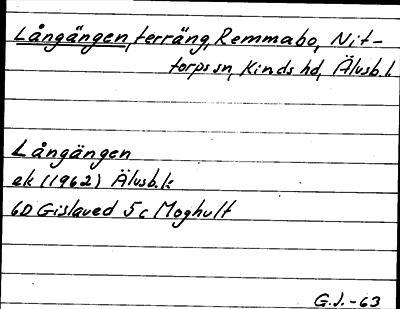 Långängen, terräng, Remmabo, Nit-
torps sn, Kinds hd, Älvsb.l.
Långängen
ek (1962) Älvsb.lk
6D Gislaved 5c Moghult
G.J.-63